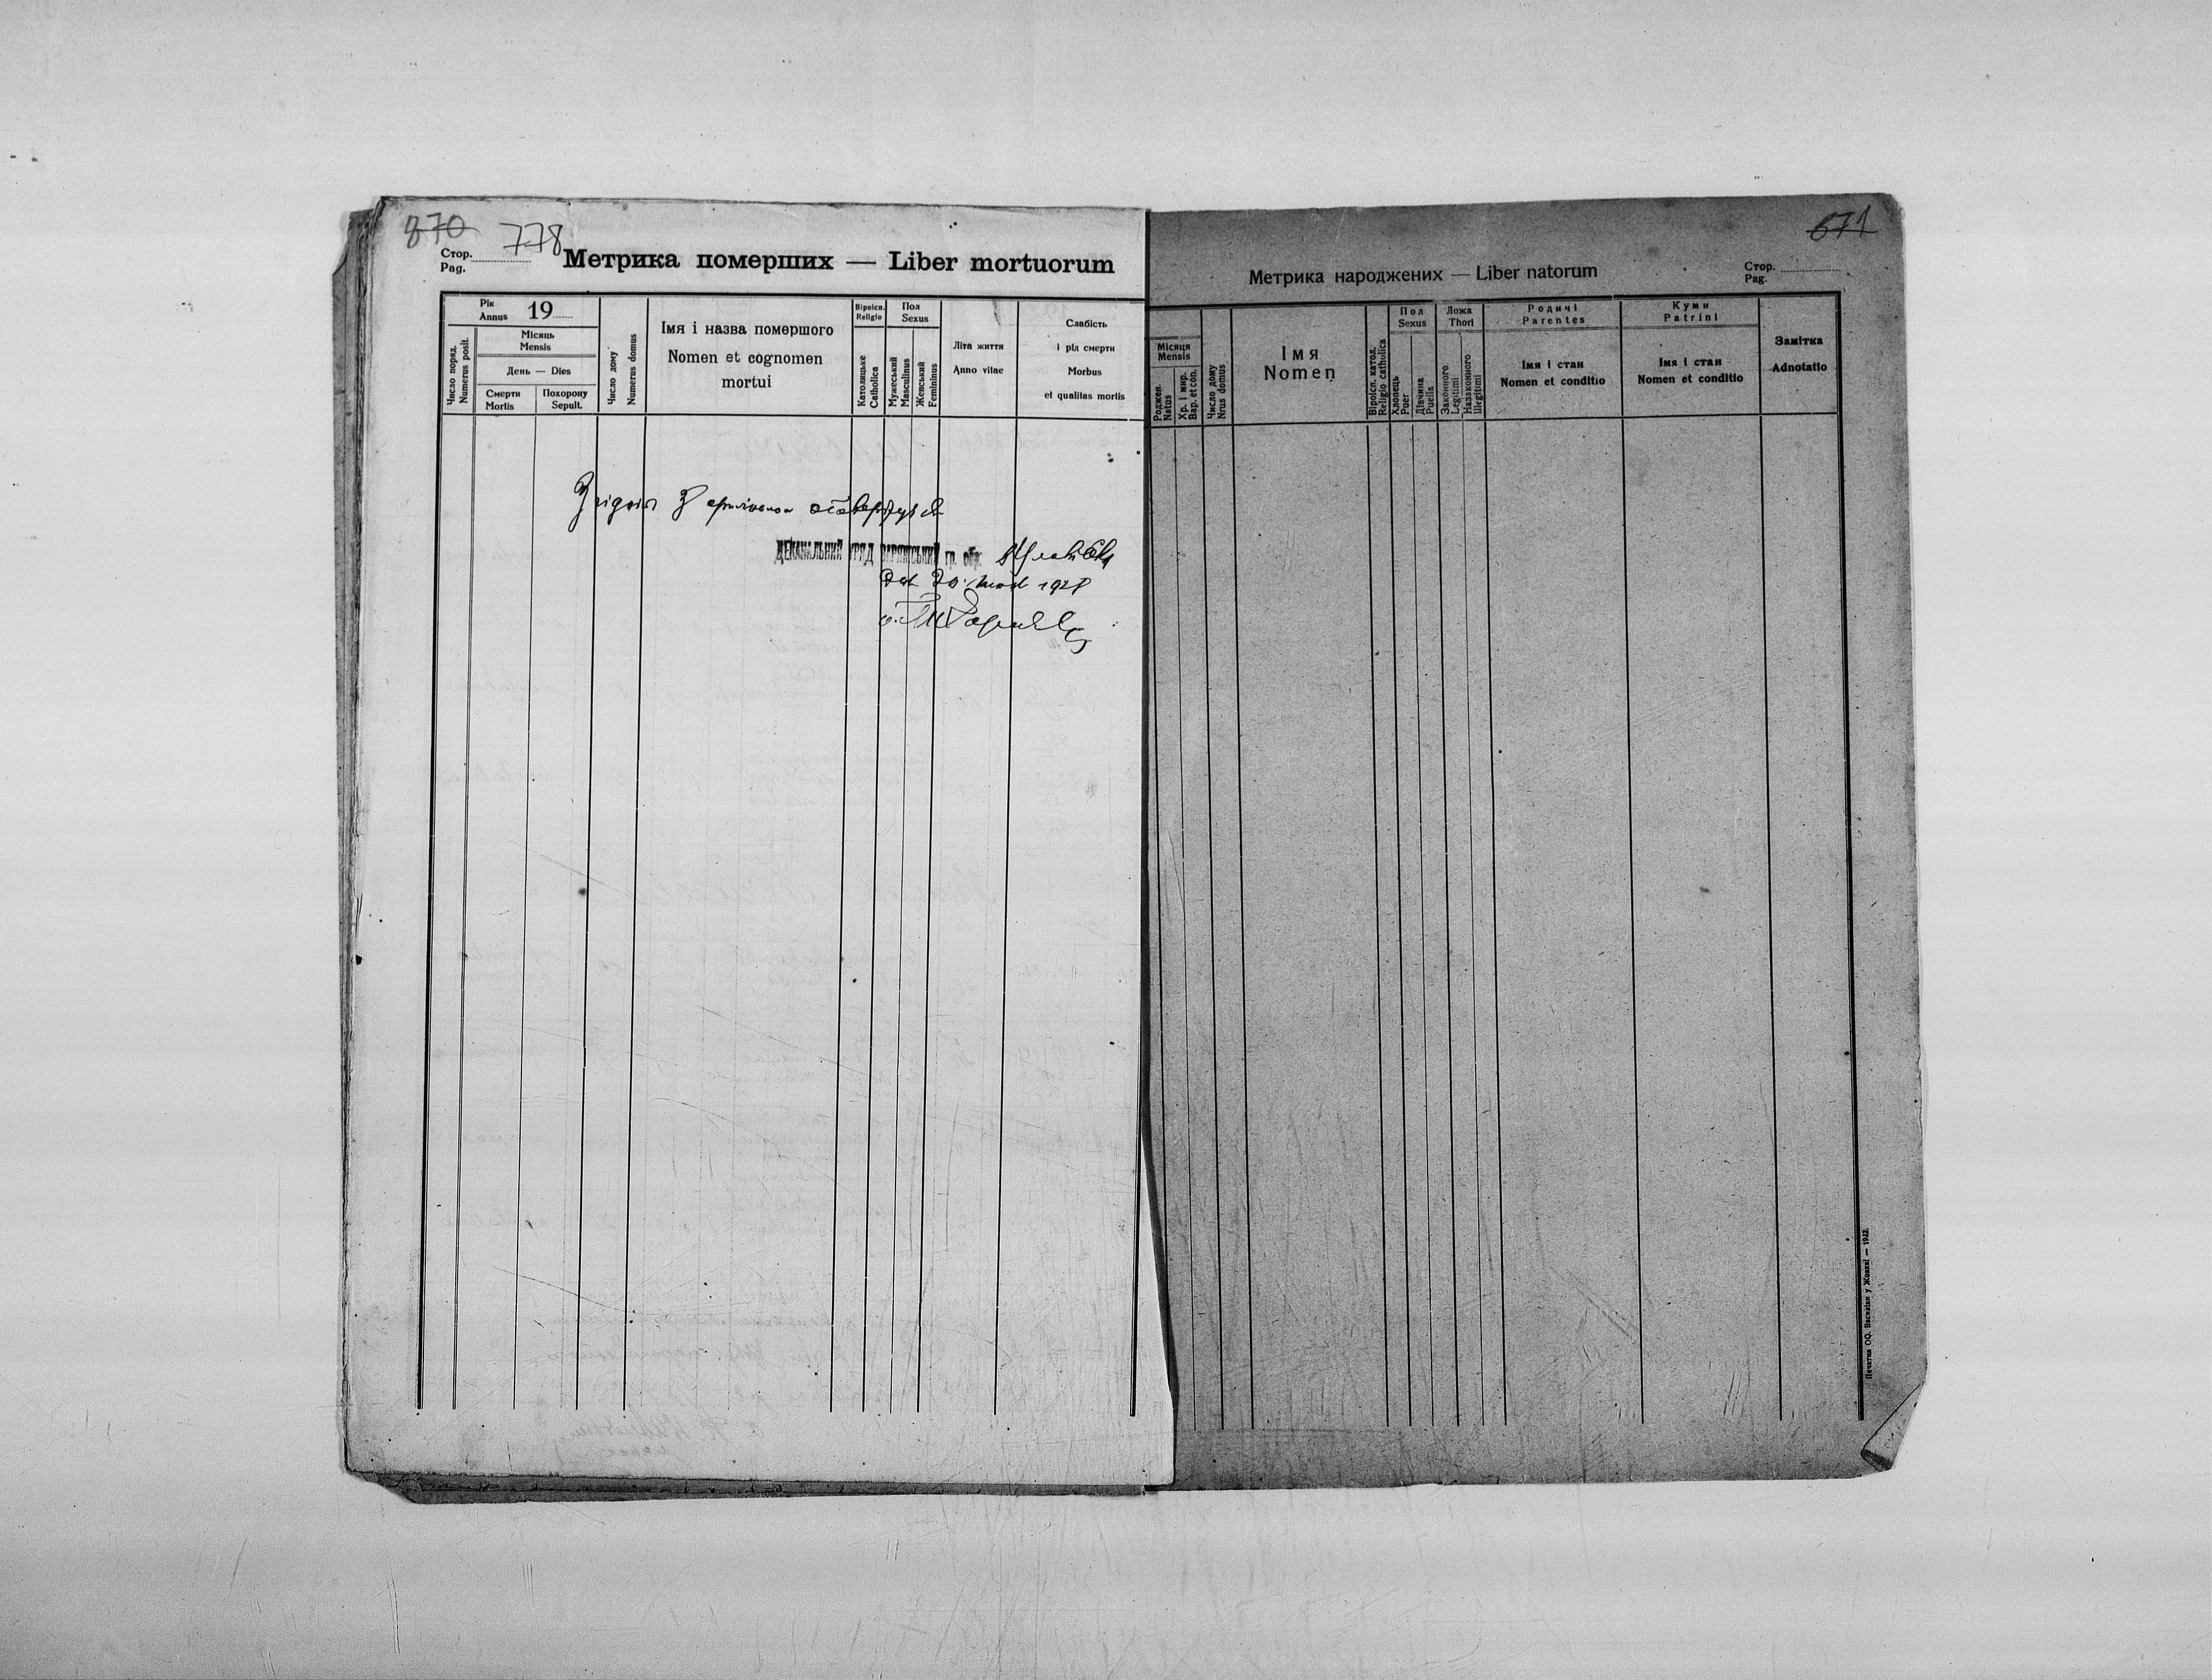 870 778
Стор.
Pag.
Метрика померших — Liber mortuorum
Рік
Annus 19
Число поряд.
Numerus posit.
Місяць
Mensis
День — Dies
Смерти
Mortis
Похорону
Sepult.
Число дому
Numerus domus
Імя і назва помершого
Nomen et cognomen
mortui
Віроісп.
Religio
Католицьке
Catholica
Пол
Sexus
Мужеський
Masculinus
Женський
Femininus
Літа життя
Anno vitae
Слабість
і рід смерти
Morbus
et qualitas mortis
Згідність з
ДЕКАНАЛЬНИЙ УРЯД гр. обр.
1928
671
Метрика народжених — Liber natorum
Стор.
Pag.
Місяця
Mensis
Роджен.
Natus
Хр. і мир.
Bap. et con.
Число дому
Nrus domus
Імя
Nomen
Віроісп. катол.
Religio catholica
Пол
Sexus
Хлопець
Puer
Дівчина
Puella
Ложа
Thori
Законного
Legitimi
Незаконного
Illegitimi
Родичі
Parentes
Імя і стан
Nomen et conditio
Куми
Patrini
Імя і стан
Nomen et conditio
Замітка
Adnotatio
Печатня ОО. Василіян у Жовкві — 1922.